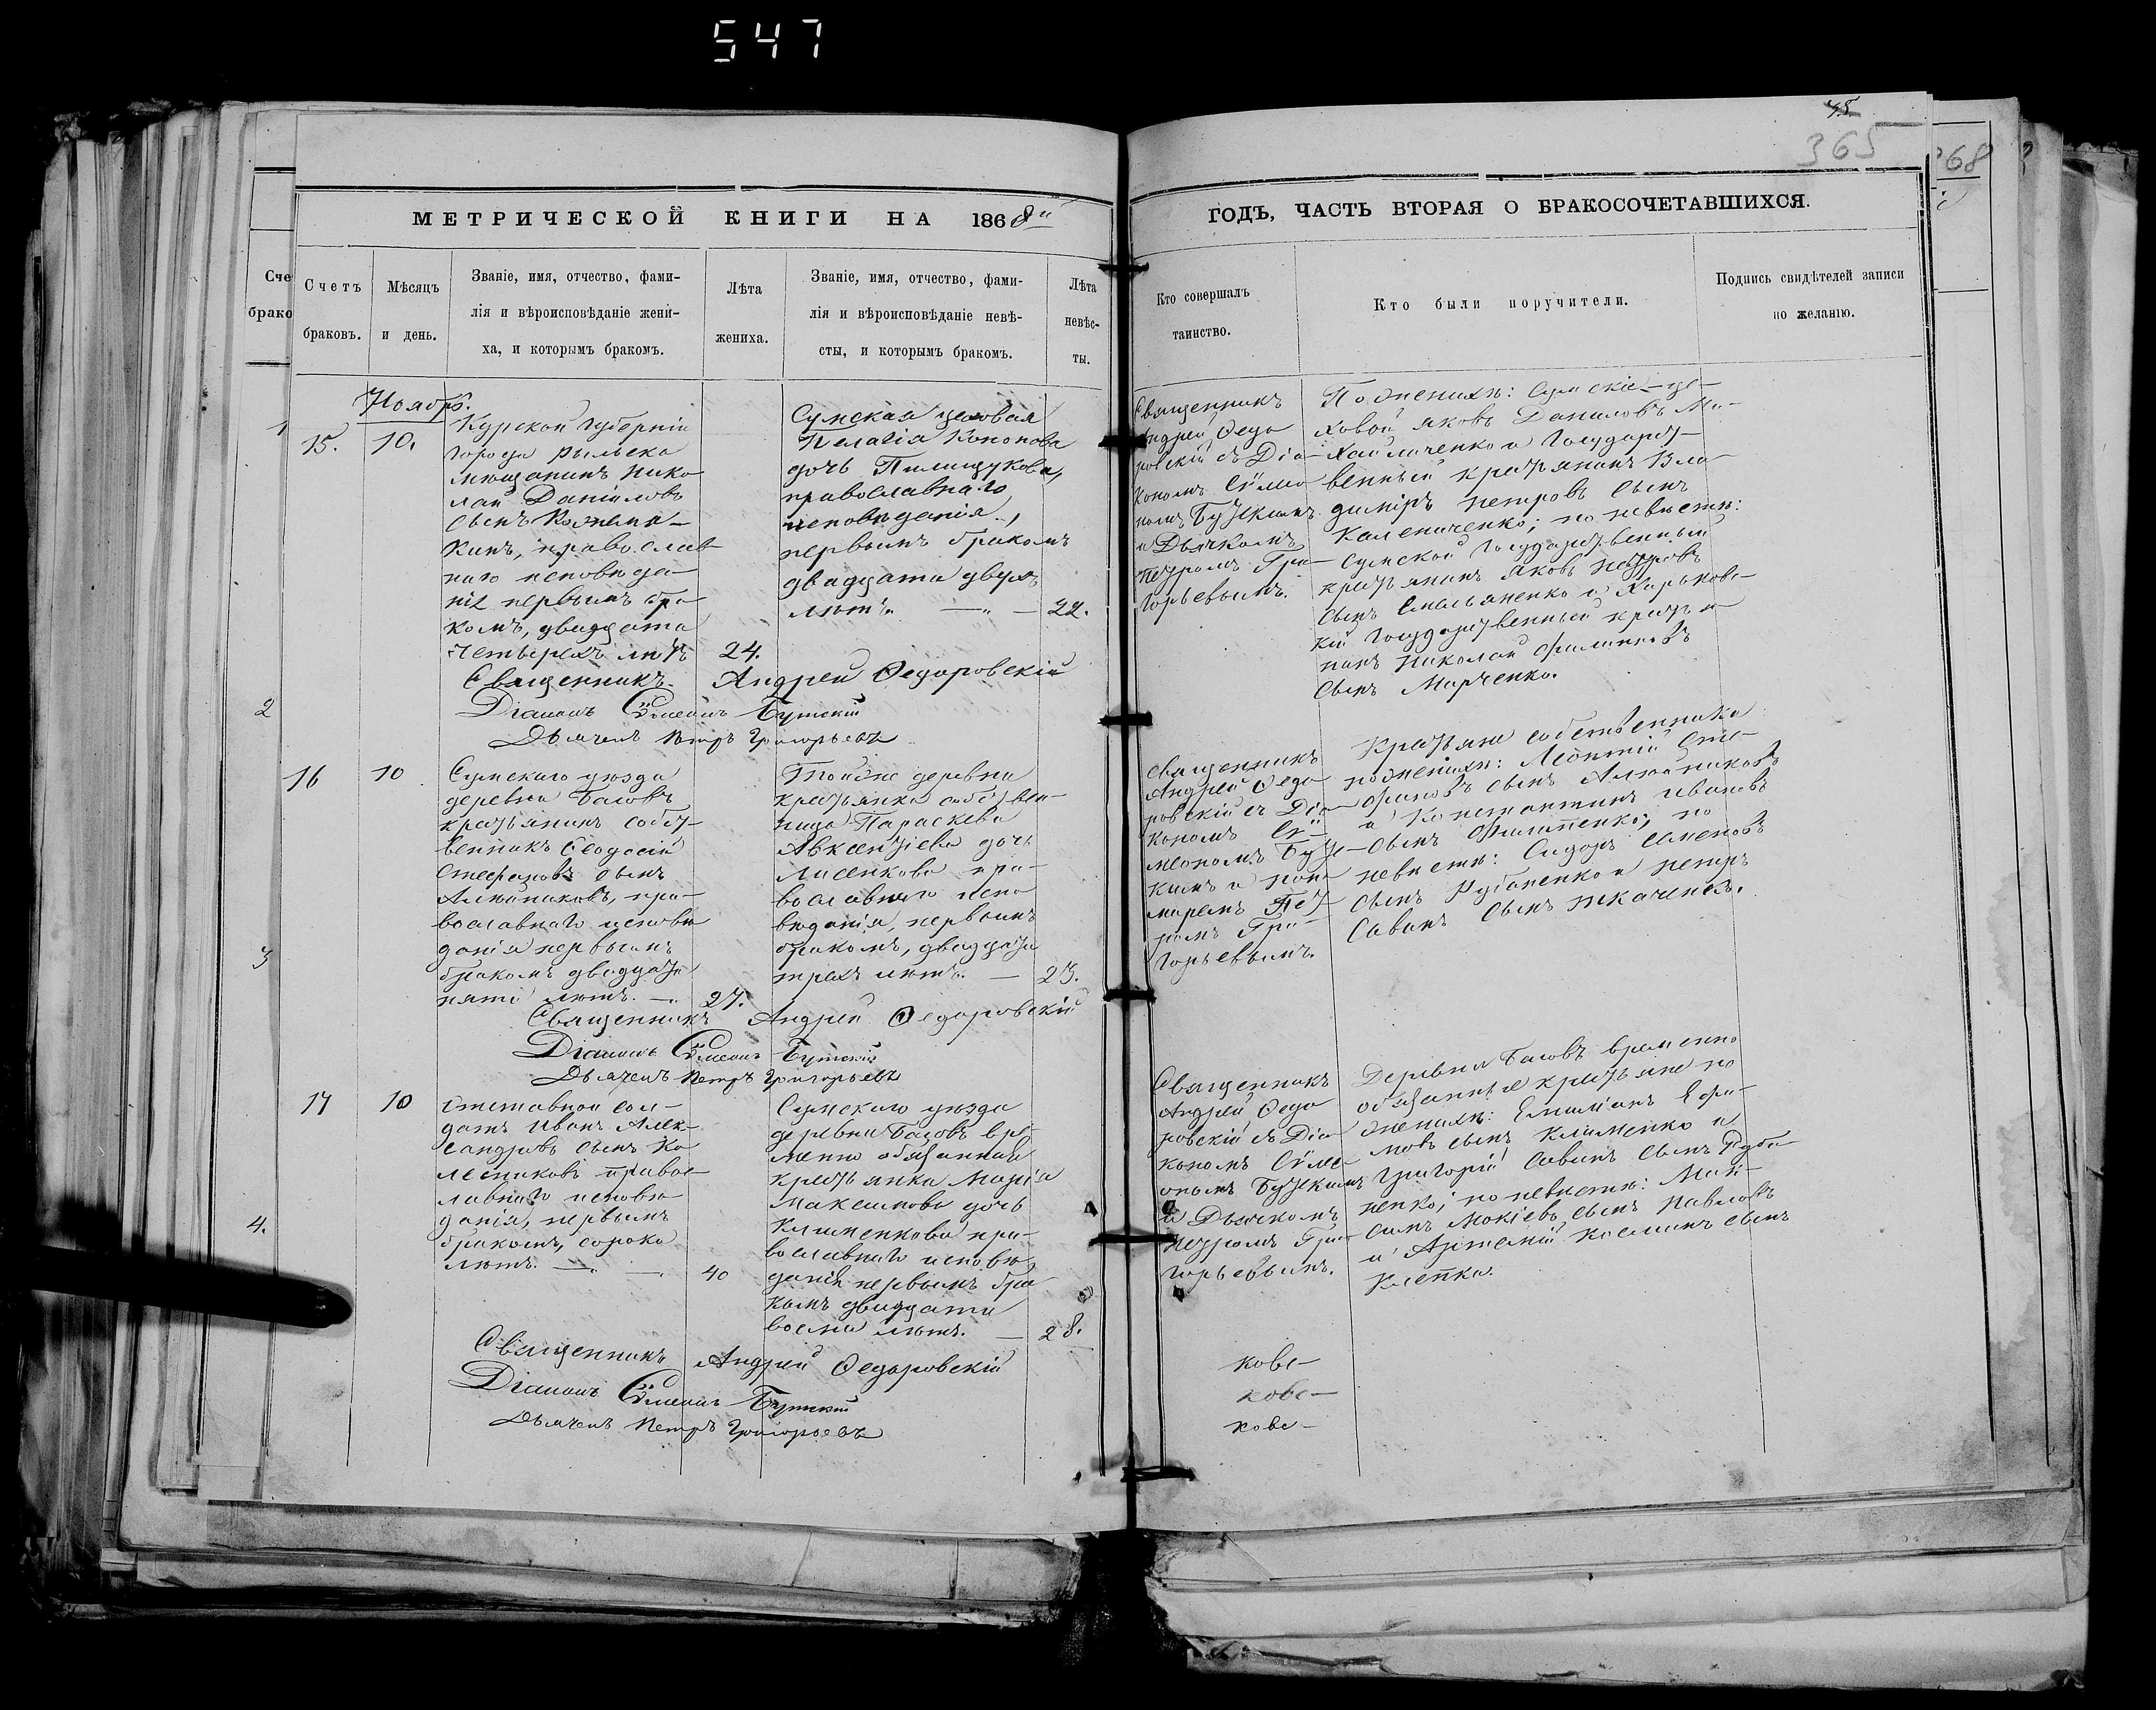 547
48
365
68
МЕТРИЧЕСКОЙ КНИГИ НА 1868й
ГОДЪ, ЧАСТЬ ВТОРАЯ О БРАКОСОЧЕТАВШИХСЯ.
Сче
брако
Счетъ
браковъ.
Мѣсяцъ
и день.
Званіе, имя, отчество, фами-
лія и вѣроисповѣданіе жени-
ха, и которымъ бракомъ.
Лѣта
жениха.
Званіе, имя, отчество, фами-
лія и вѣроисповѣданіе невѣ-
сты, и которымъ бракомъ.
Лѣта
невѣс-
ты.
Кто совершалъ
таинство.
Кто были поручители.
Подпись свидѣтелей записи
по желанію.
1
2
3
4.
Ноябрь.
15.
10.
Курской Губерніи
города Рыльска
мѣщанинъ Нико
лай Даніиловъ
сынъ
кинъ, православ
наго исповѣда
нія первымъ бра
комъ, двадцати
четырехъ лѣтъ
24.
Сумская цеховая
Пелагія Кононова
дочь Пилипцукова,
православнаго
исповѣданія,
первымъ бракомъ
двадцати двухъ
лѣтъ.
22.
Священникъ
Андрей Ѳедо
ровскій съ Діа-
кономъ Сѵмео
номъ Бутскимъ
и Дьячкомъ
Петромъ Гри-
горьевымъ.
По женихѣ: Сумскіе це-
ховой Яковъ Даниловъ Ми-
хайличенко и Государст-
венный крестьянинъ Вла-
диміръ Петровъ сынъ
Калениченко; по невѣстѣ:
Сумской Государственный
крестьянинъ Яковъ Петровъ
сынъ Емельяненко и Харьковс-
кій Государственный крестья-
нинъ Николай Филиповъ
сынъ Марченко.
Священникъ Андрей Ѳедоровскій
Діаконъ Сѵмеонъ Бутскій
Дьячекъ Петръ Григорьевъ
16
10
Сумскаго уѣзда
деревни Басовъ
крестьянинъ собст-
венникъ Ѳеодосій
Стефановъ сынъ
Алейниковъ, пра-
вославнаго исповѣ
данія первымъ
бракомъ двадцати
пяти лѣтъ.
27.
Тойже деревни
крестьянка собствен-
ница Параскева
Авксентіева дочь
Лисенкова пра-
вославнаго испо
вѣданія, первымъ
бракомъ, двадцати
трехъ лѣтъ.
23.
Священникъ
Андрей Ѳедо
ровскій съ Діа-
кономъ Сѵ-
меономъ Бутс-
кимъ и поно
маремъ Пет
ромъ Гри-
горьевымъ.
Крестьяне собственники
по женихѣ: Леонтій Сте-
фановъ сынъ Алейниковъ
и Константинъ Ивановъ
сынъ Филипенко; по
невѣстѣ: Сидоръ Семеновъ
сынъ Рубаненко и Петръ
Савинъ сынъ Ткаченко.
Священникъ Андрей Ѳедоровскій
Діаконъ Сѵмеонъ Бутскій
Дьячекъ Петръ Григорьевъ
17
10
Отставной сол-
датъ Иванъ Алек-
сандровъ сынъ Ко
лесниковъ правос-
лавнаго исповѣ
данія, первымъ
бракомъ, сорока
лѣтъ.
40
Сумскаго уѣзда
деревни Басовъ вре-
менно обязанная
крестьянка Марія
Максимова дочь
Клименкова пра-
вославнаго исповѣ
данія первымъ бра
комъ двадцати
восьми лѣтъ.
28.
Священникъ
Андрей Ѳедо
ровскій съ Діа
кономъ Сѵме
ономъ Бутскимъ
и Дьячкомъ
Петромъ Гри-
горьевымъ.
Деревни Басовъ временно
обязанные крестьяне по
женихѣ: Емиліанъ Ефи-
мовъ сынъ Клименко и
Григорій Савинъ сынъ Руба-
ненко; по невѣстѣ: Мак-
симъ Мокіевъ сынъ Павловъ
и Артемій Косминъ сынъ
Клепка.
Священникъ Андрей Ѳедоровскій
Діаконъ Сѵмеонъ Бутскій
Дьячекъ Петръ Григорьевъ
кове-
кове-
кове-